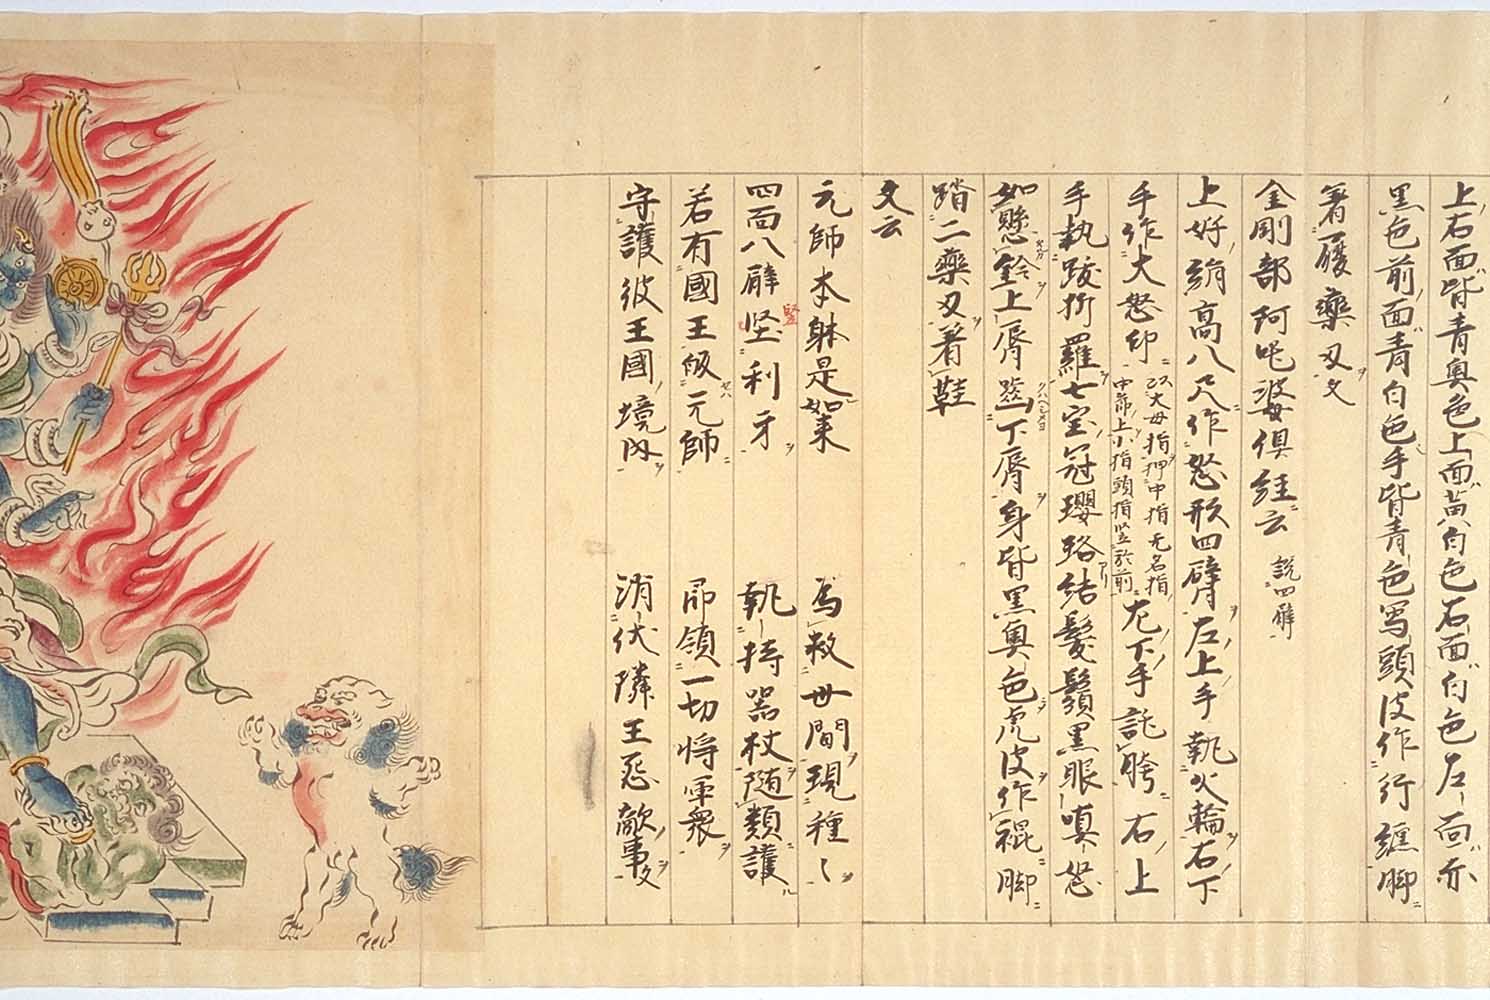 上右面皆青奥色上面黄白色右面白色左面亦
黒色前面青白色手皆青色写頭皮作行纏脚
著履藥叉文
金剛部阿吒婆俱経云 説四臂
上好絹高八尺作怒形四臂左上手執火輪右下
手作大怒印 以大母指押中指无名指中節上小指頭指竪於前 左下手託胯右上
手執跋折羅七宝冠瓔珞結髪鬚黒眼嗔怒
如懸鈴上脣下脣身皆黒奥色虎皮作裩脚
踏二藥叉著鞋
文云
元師本躰是如来 為救世間現種〻
四面八臂坚利牙 執持器杖随類護
竪
若有國王皈元師 即領一切将軍衆
守護彼王國境内 消伏隣王惡敵事文